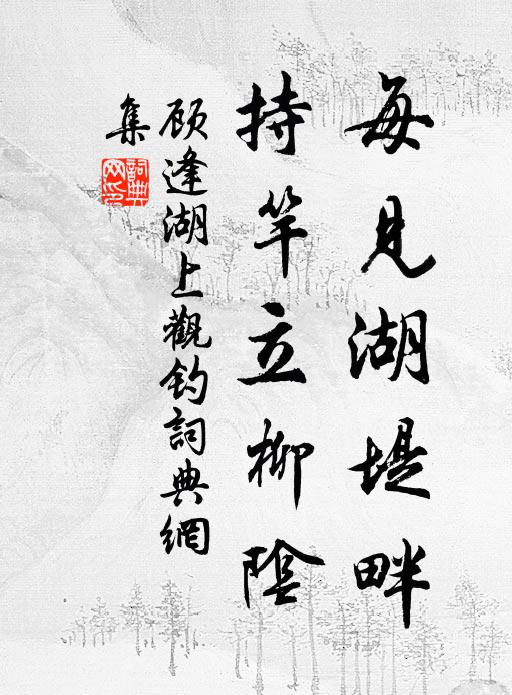 每見湖堤畔
持竿立柳陰
顾逢湖上觀钓詞典網
集
詞典
网印